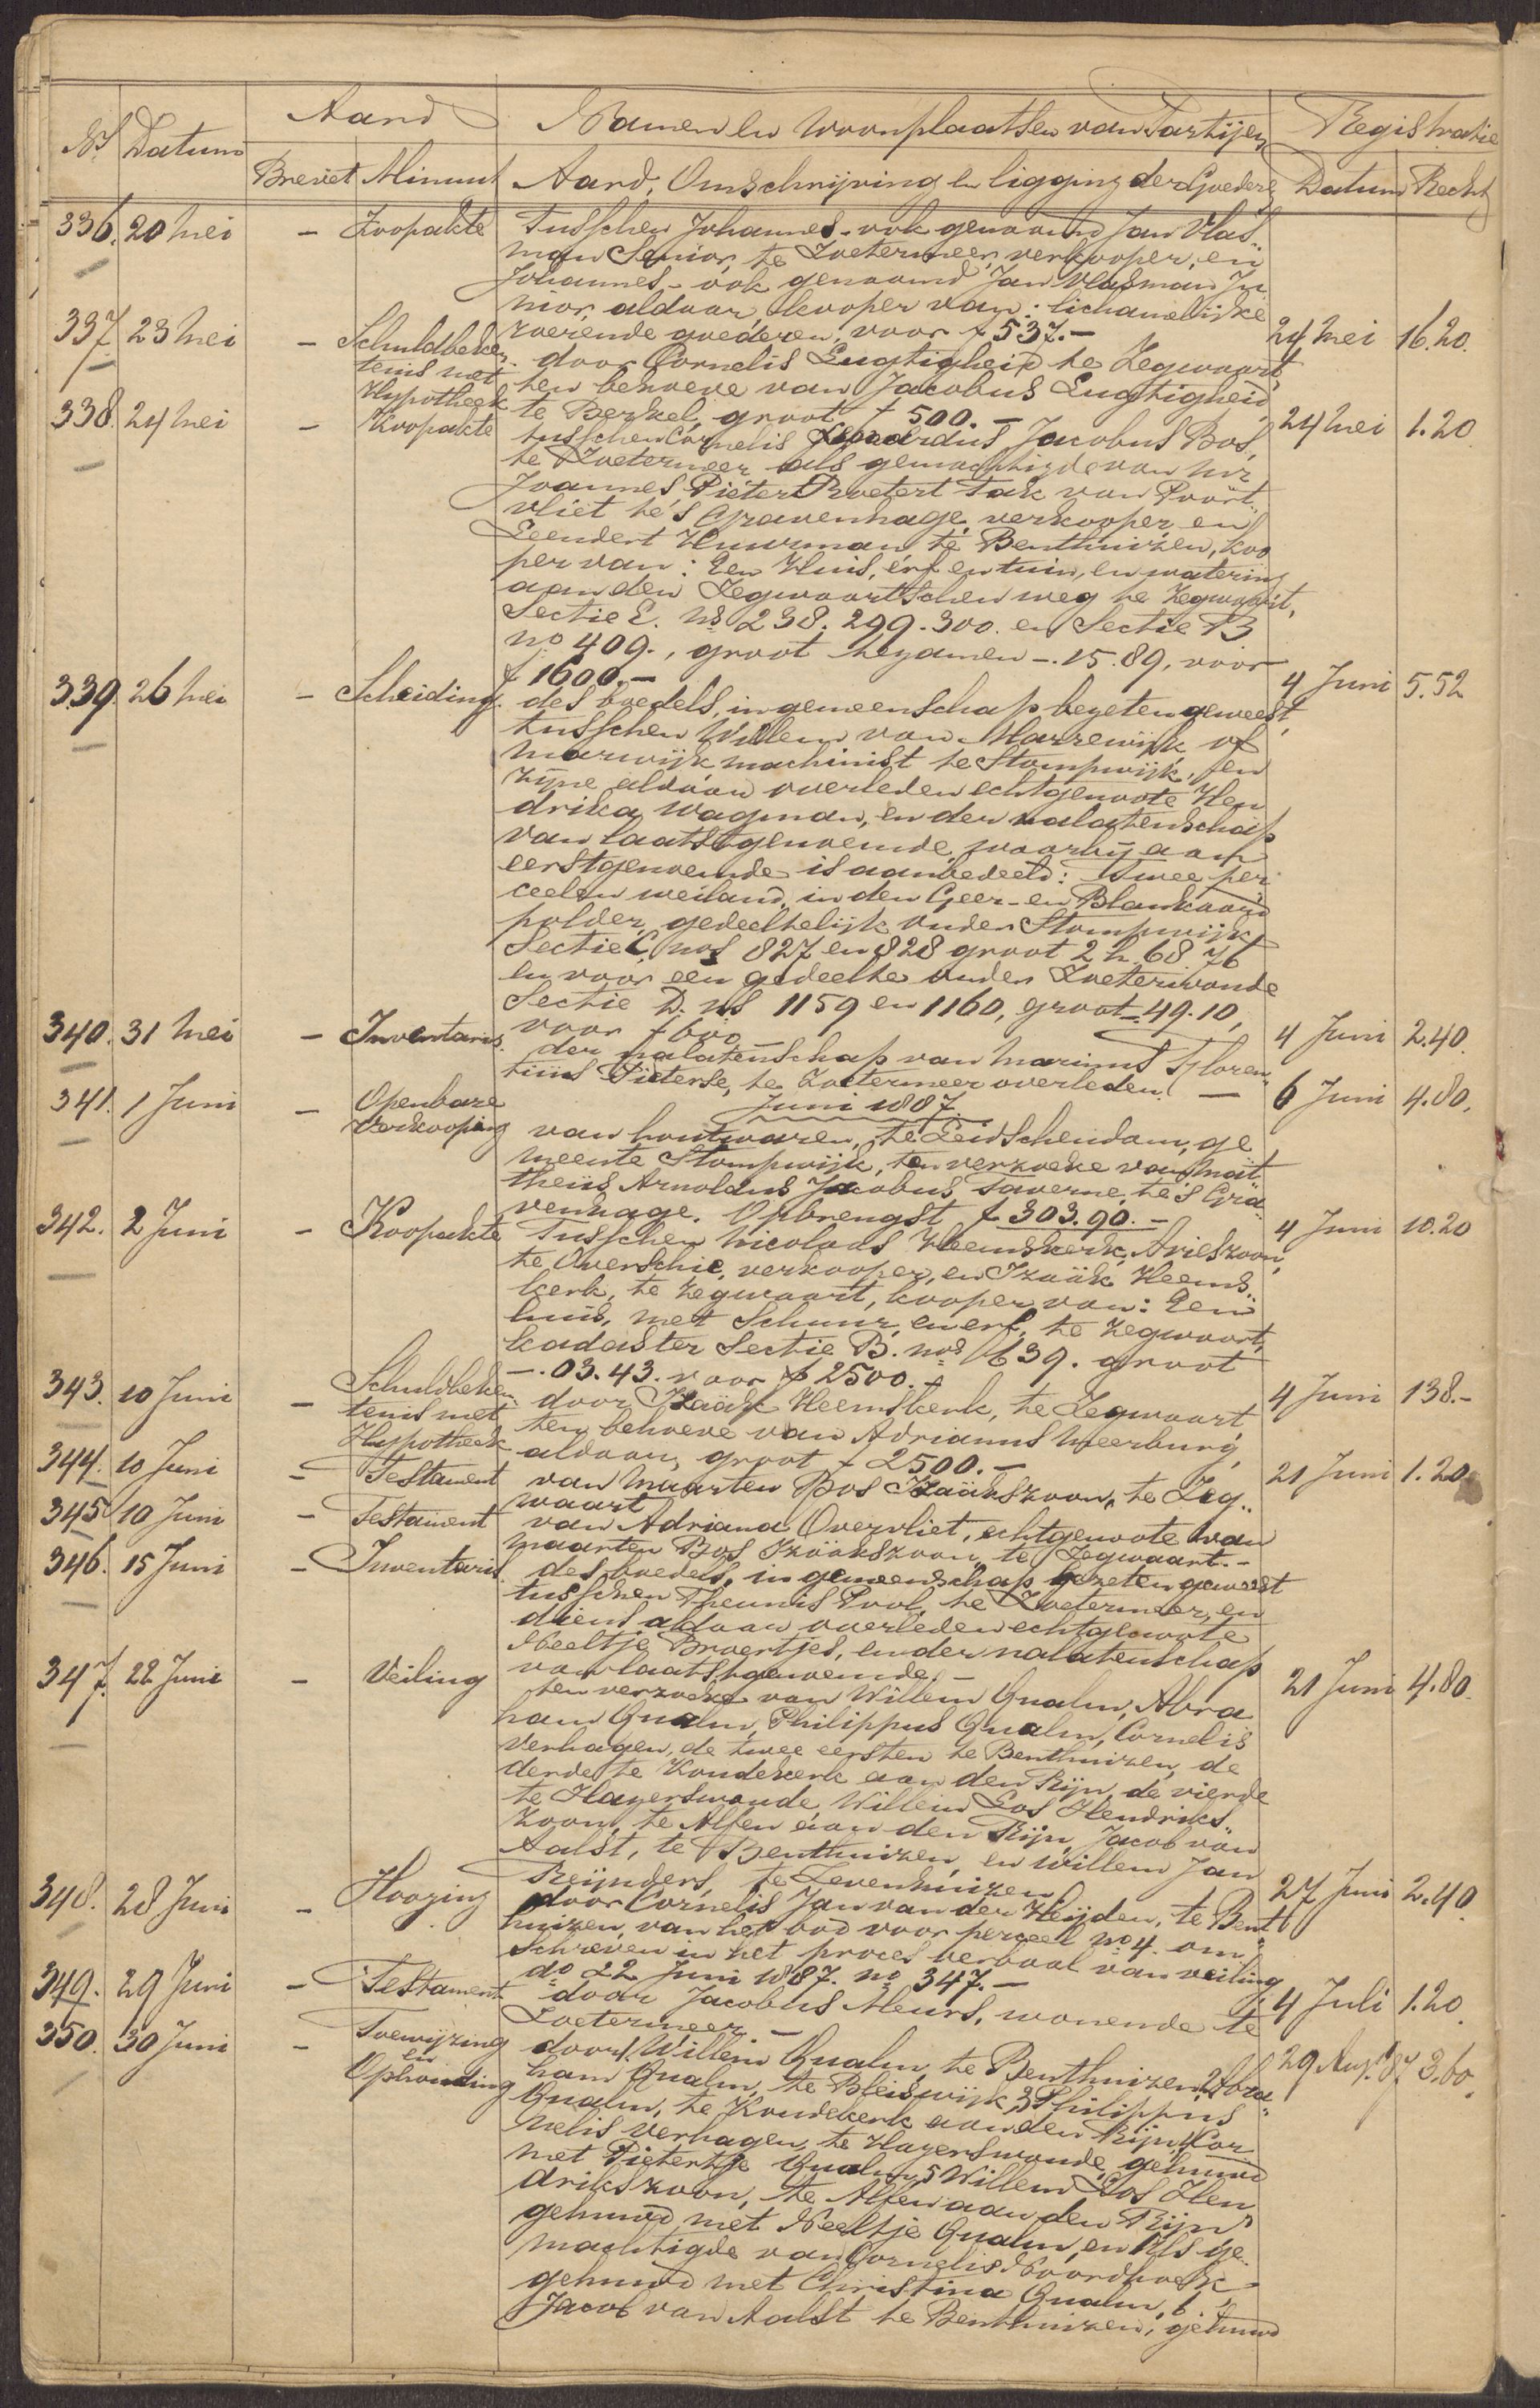 Aard Namen en Woonplaatsen van Partijen Registratie
Ns Datum
Brevet Minuut Aard, Omschrijving en ligging der Goederen Datum Recht
336. 20 Mei – Koopakte Tusschen Johannes – ook genaamd Jan Vlas„
man Senior, te Zoetermeer, verkooper, en
Johannes – ook genaamd Jan Vlasman Ju
nior, aldaar, kooper van: lichamelijke
roerende goederen, voor f 537.– 24 Mei 16.20.
337. 23 Mei – Schuldbeken„ door Cornelis Lugtigheid te Zegwaart,
tenis met ten behoeve van Jacobus Lugtigheid
Hypotheek te Berkel, groot f 500.– 24 Mei 1.20
338. 24 Mei – Koopakte tusschen Cornelis Leonardus Jacobus Bos,
te Zoetermeer als gemachtigde van Mr.
Joannes Pieter Roetert Tak van Poort„
vliet te 's Gravenhage, verkooper, en
Leendert Huurman, te Benthuizen, koo
per van: Een Huis, erf en tuin, en watering
aan den Zegwaartschen weg te Zegwaart,
Sectie E. Ns 238. 299. 300. en Sectie B
no 409., groot tezamen –.15.89, voor
f 1600.– 4 Juni 5.52
339. 26 Mei – Scheiding. des boedels, in gemeenschap bezeten geweest,
tusschen Willem van Marrewijk of
Marwijk machinist te Stompwijk, en
zijne aldaar overleden echtgenoote Hen
drika Wagman, en der nalatenschap
van laatstgenoemde, waarbij aan
eerstgenoemde is aanbedeeld: Twee per
ceelen weiland, in den Geer- en Blankaard
polder, gedeeltelijk onder Stompwijk
Sectie C, nos 827 en 828 groot 2 h. 68 76
en voor een gedeelte onder Zoeterwoude
Sectie D. ns 1159 en 1160, groot –.49.10,
voor f 600 – 4 Juni 2.40.
340. 31 Mei – Inventaris. der nalatenschap van Marinus Floren„
tius Pieterse, te Zoetermeer overleden. – 6 Juni 4.80.
Juni 1887.
341. 1 Juni – Openbare
Verkooping van houtwaren, te Leidschendam, ge
meente Stompwijk, ten verzoeke van Mat„
theüs Arnoldus Jacobus Taverne, te 's Gra„
venhage. Opbrengst f 303.90.– 4 Juni 10.20
342. 2 Juni – Koopakte Tusschen Nicolaas Heemskerk, Arieszoon,
te Overschie, verkooper, en Izaäk Heems„
kerk, te Zegwaart, kooper van: Een
huis, met Schuur, en erf, te Zegwaart,
kadaster Sectie B. nos 639. groot
–.03.43. voor f 2500.– 4 Juni 138.–
343. 10 Juni – Schuldbeken„ door Izaäk Heemskerk, te Zegwaart,
tenis met ten behoeve van Adrianus Meerburg,
Hypotheek aldaar, groot f 2500.– 21 Juni 1.20
344. 10 Juni – Testament van Maarten Bos Izaäkszoon, te Zeg„
waart
345 10 Juni – Testament van Adriana Overvliet, echtgenoote van
Maarten Bos Izaäkszoon, te Zegwaart.–
346. 15 Juni – Inventaris. des boedels, in gemeenschap bezeten geweest
tusschen Theunis Pool, te Zoetermeer, en
diens aldaar overleden echtgenoote
Neeltje Broertjes, en der nalatenschap
van laatstgenoemde. – 21 Juni 4.80.
347. 22 Juni – Veiling ten verzoeke van Willem Qualm, Abra
ham Qualm, Philippus Qualm, Cornelis
Verhagen, de twee eersten te Benthuizen, de
derde te Koudekerk aan den Rijn, de vierde
te Hazerswoude, Willem Los Hendriks„
zoon, te Alfen aan den Rijn, Jacob van
Aalst, te Benthuizen, en Willem Jan
Reijnders, te Zevenhuizen 27 Juni 2.40.
348. 28 Juni – Hooging door Cornelis Jan van der Heijden, te Bent
huizen, van het bod voor perceel no 4. om„
schreven in het proces verbaal van veiling
do 22 Juni 1887. no 347.– 4 Juli 1.20.
349. 29 Juni – Testament door Jacobus Meurs, wonende te
Zoetermeer –
350. 30 Juni – Toewijzing door 1. Willem Qualm, te Benthuizen, 2 Abra„ 29 Aug. 87 3.60.
en ham Qualm, te Bleiswijk, 3 Philippus
Ophouding Qualm, te Koudekerk aan den Rijn, 4 Cor
nelis Verhagen, te Hazerswoude, gehuwd
met Pietertje Qualm, 5 Willem Los Hen
drikszoon, te Alfen aan den Rijn,
gehuwd met Neeltje Qualm, en Als ge„
machtigde van Cornelis Noordhoek
gehuwd met Christina Qualm, 6.
Jacob van Aalst te Benthuizen, gehuwd